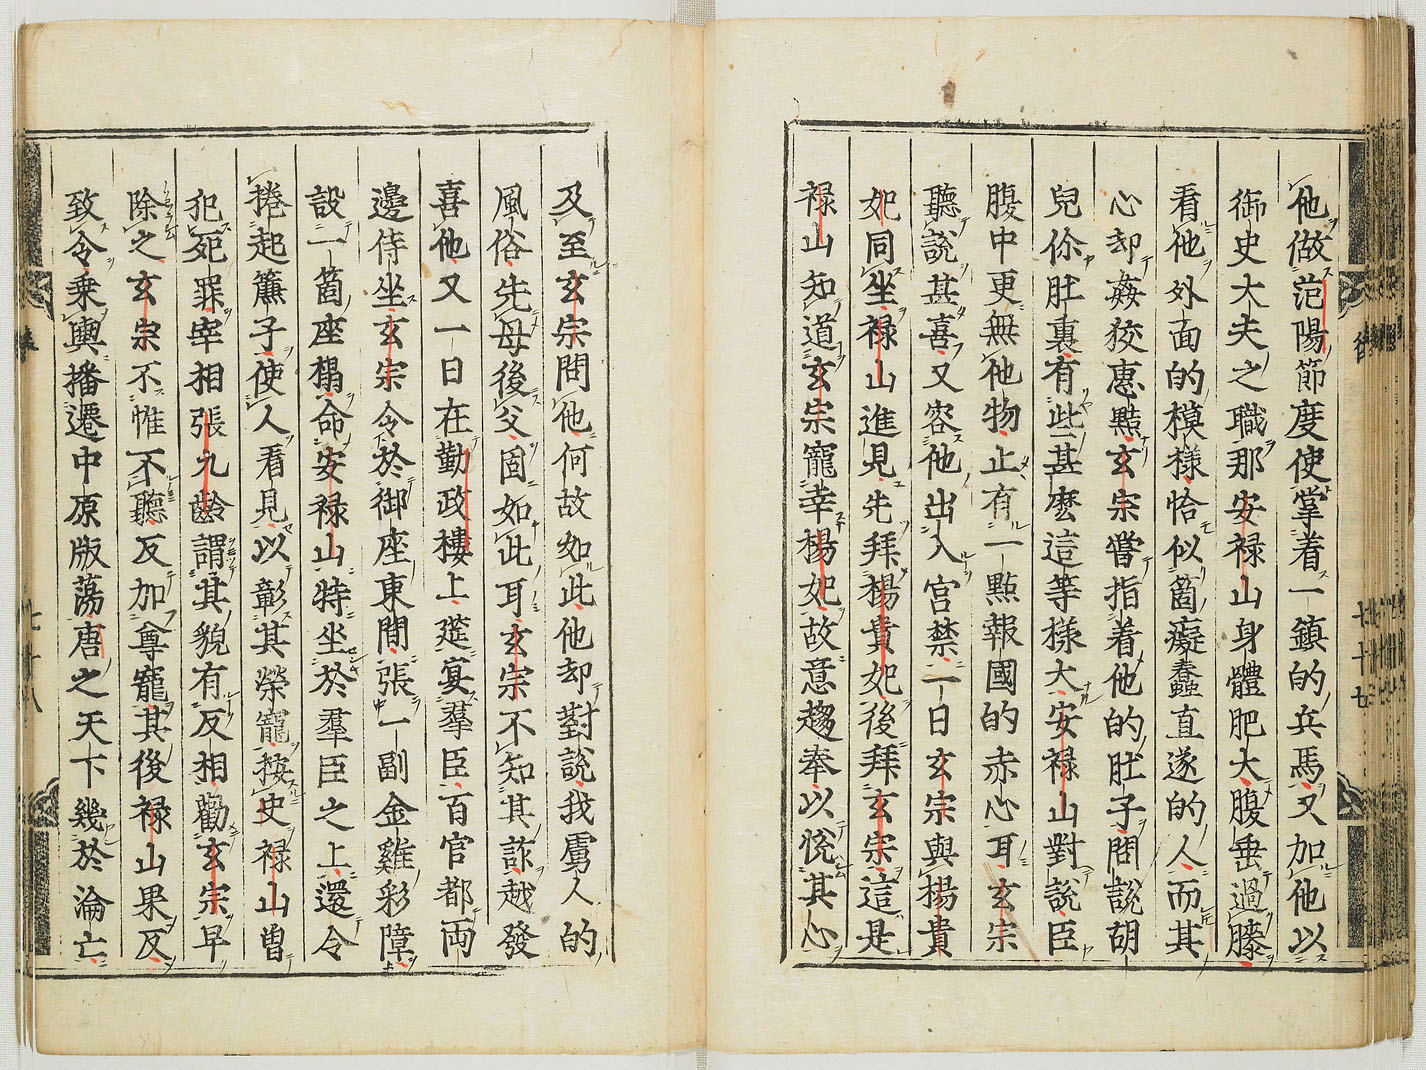 他做范陽節度使掌着一鎮的兵馬又加他以
御史大夫之職那安禄山身體肥大腹垂過膝
看他外面的模樣恰似箇癡蠢直遂的人而其
心却姦狡惠黠玄宗嘗指着他的肚子問説胡
兒伱肚裏有些甚麽這等樣大安禄山對説臣
腹中更無他物止有一點報國的赤心耳玄宗
聽説甚喜又容他出入宮禁一日玄宗與楊貴
妃同坐禄山進見先拜楊貴妃後拜玄宗這是
禄山知道玄宗寵幸楊妃故意趨奉以悅其心
及至玄宗問他何故如此他却對說我虜人的
風俗先母後父固如此耳玄宗不知其詐越發
喜他又一日在勤政樓上筵宴羣臣百官都両
邊侍坐玄宗令於御座東間張一副金雞彩障
設一箇座榻命安禄山特坐於羣臣之上還令
捲起簾子使人看見以彰其榮寵按史禄山曽
犯死罪宰相張九齡謂其貌有反相勸玄宗早
除之玄宗不惟不聽反加尊寵其後禄山果反
致令乗輿播遷中原版蕩唐之天下幾於淪亡
七十七